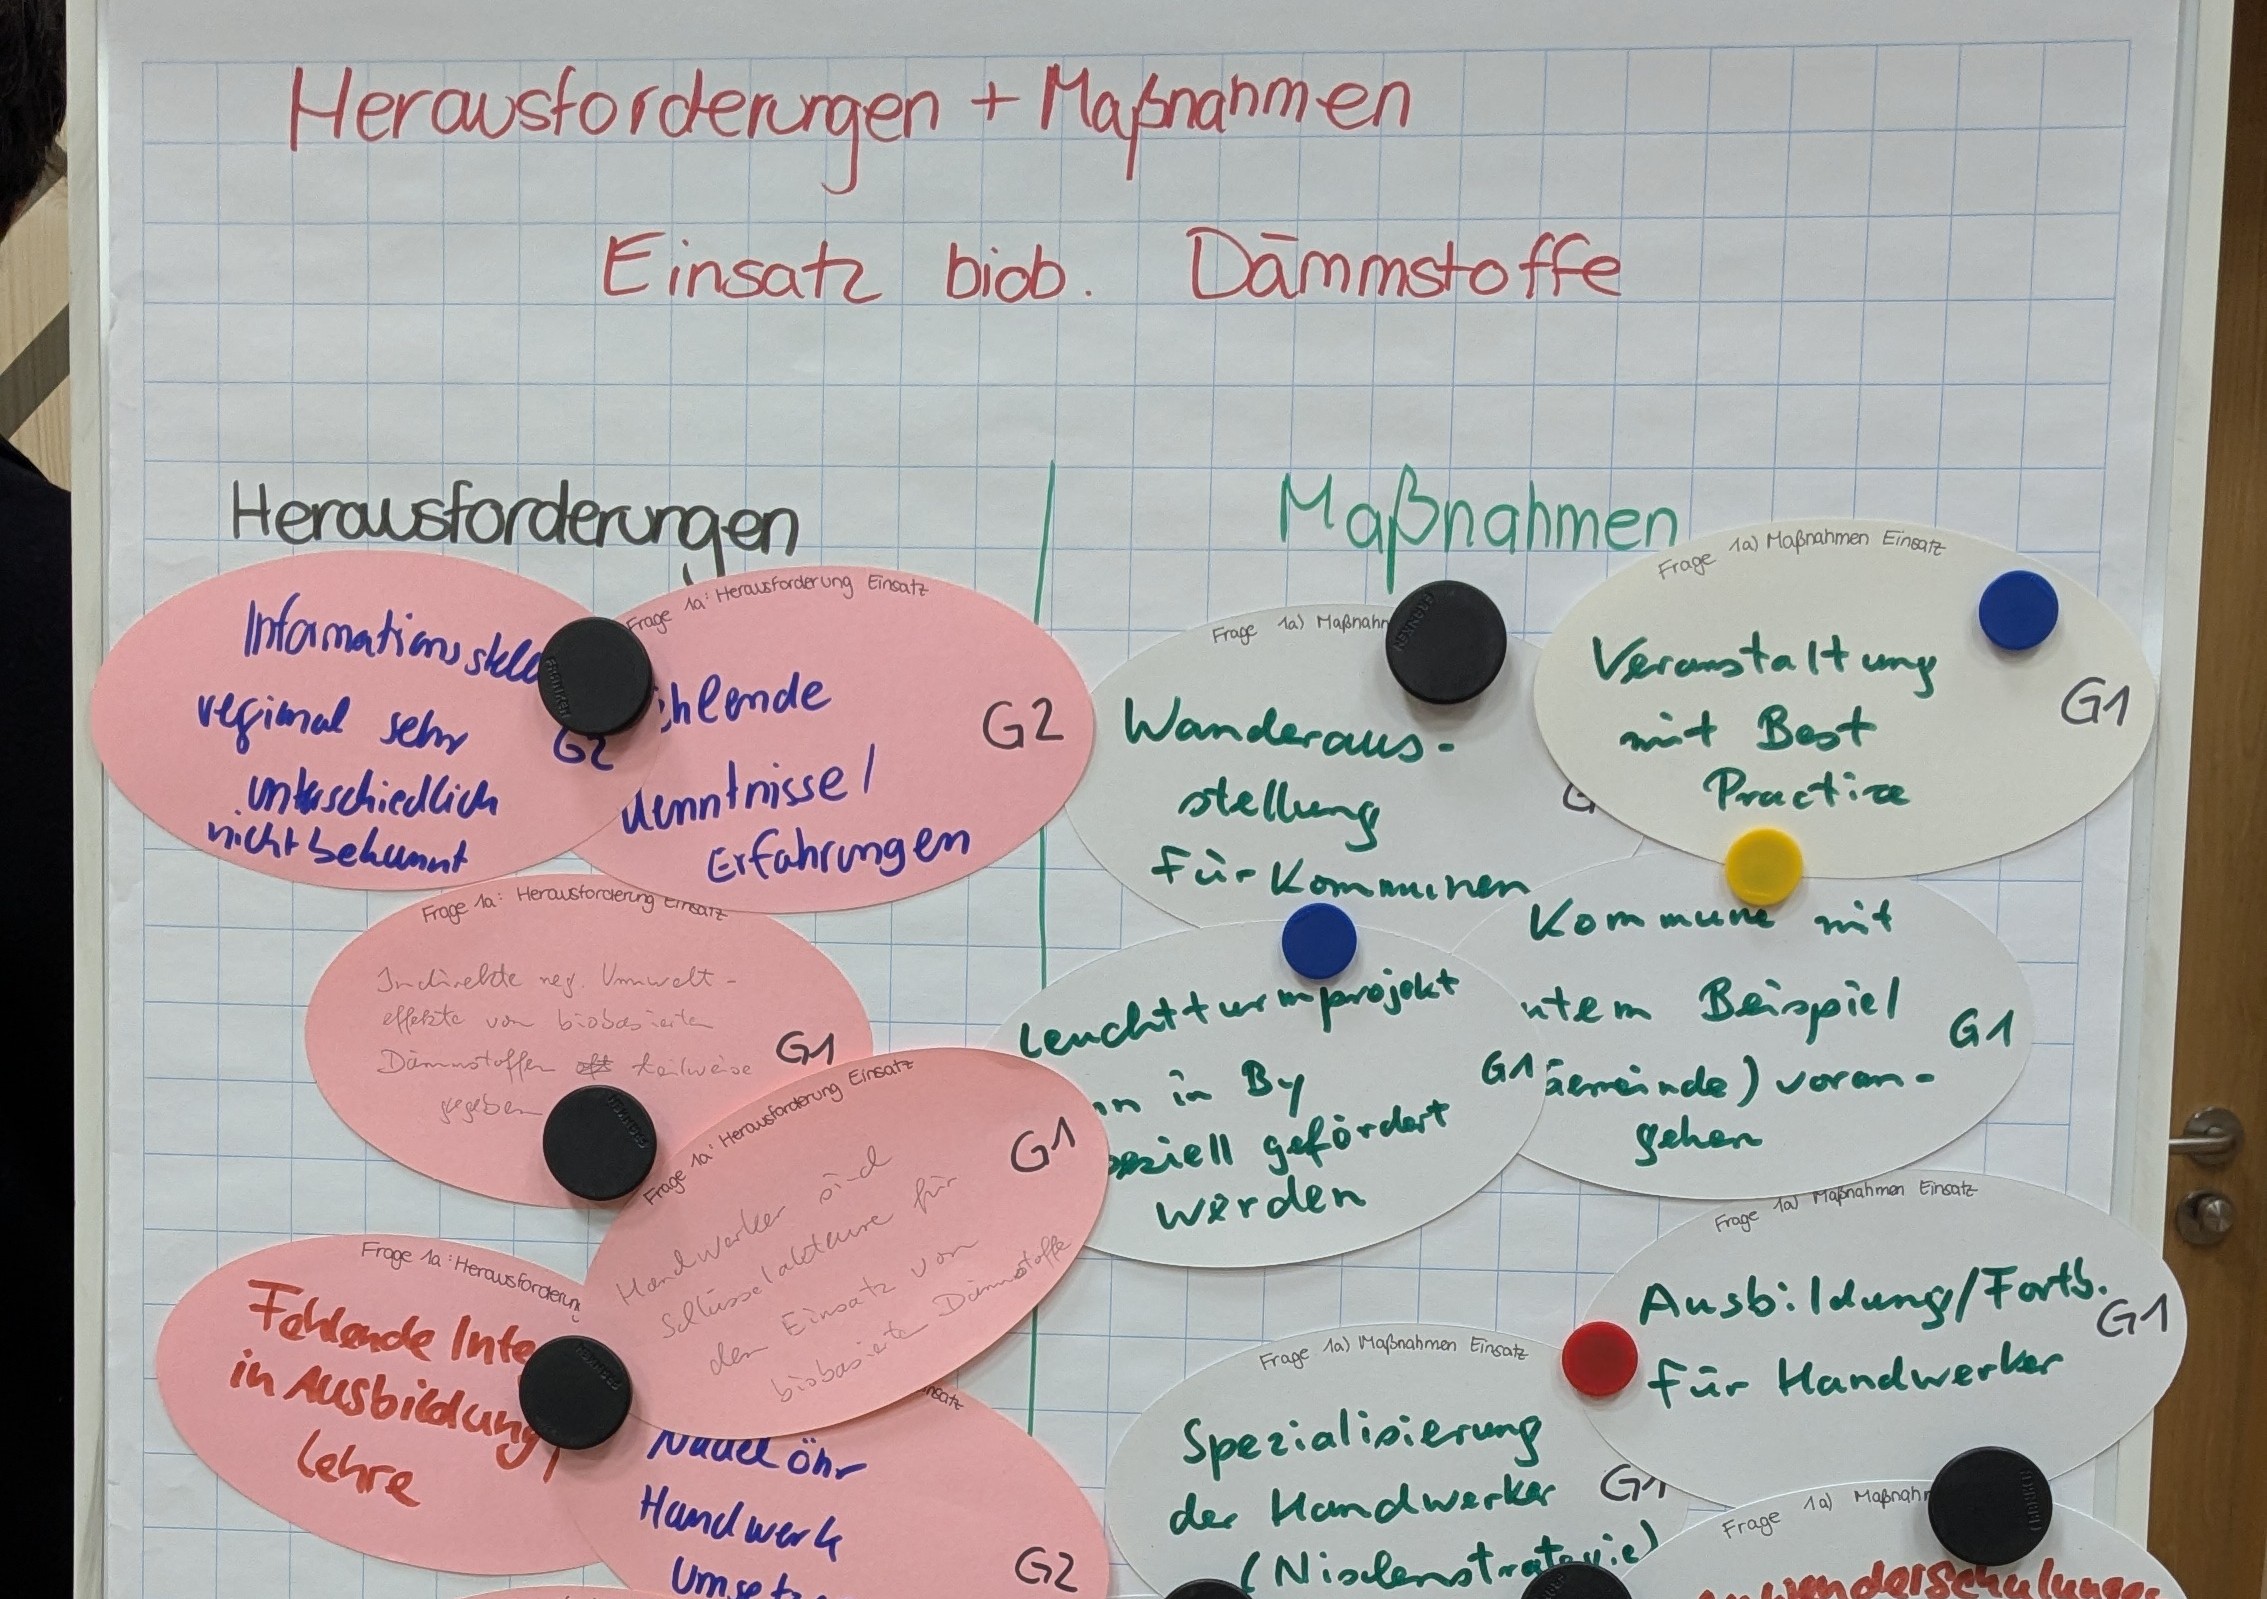 Herausforderungen + Maßnahmen
Einsatz biob. Dämmstoffe
Herausforderungen
Informationsstell
regional sehr
unterschiedlich
nicht bekannt
G2
Frage 1a: Herausforderung Einsatz
hlende
Kenntnisse/
Erfahrungen
G2
Frage 1a: Herausforderung Einsatz
Indirekte neg. Umwelt-
effekte von biobasierten
Dämmstoffen teilweise
gegeben
G1
Frage 1a: Herausforderung Einsatz
Handwerker sind
Schlüsselakteure für
den Einsatz von
biobasierte Dämmstoffe
G1
Frage 1a: Herausforderun
Fehlende Inte
in Ausbildung/
Lehre
nsatz
Nadelöhr
Handwerk
Umsetz
G2
Maßnahmen
Frage 1a) Maßnahm
Wanderaus-
stellung
für Kommunen
G
Frage 1a) Maßnahmen Einsatz
Veranstaltung
mit Best
Practice
G1
Leuchtturmprojekt
in By
eziell gefördert
werden
G1
Kommune mit
utem Beispiel
Gemeinde) voran-
gehen
G1
Frage 1a) Maßnahmen Einsatz
Ausbildung/Fortb.
für Handwerker
G1
Frage 1a) Maßnahmen Einsatz
Spezialisierung
der Handwerker
(Nischenstrategie)
G1
Frage 1a) Maßnahm
nwenderschulungen